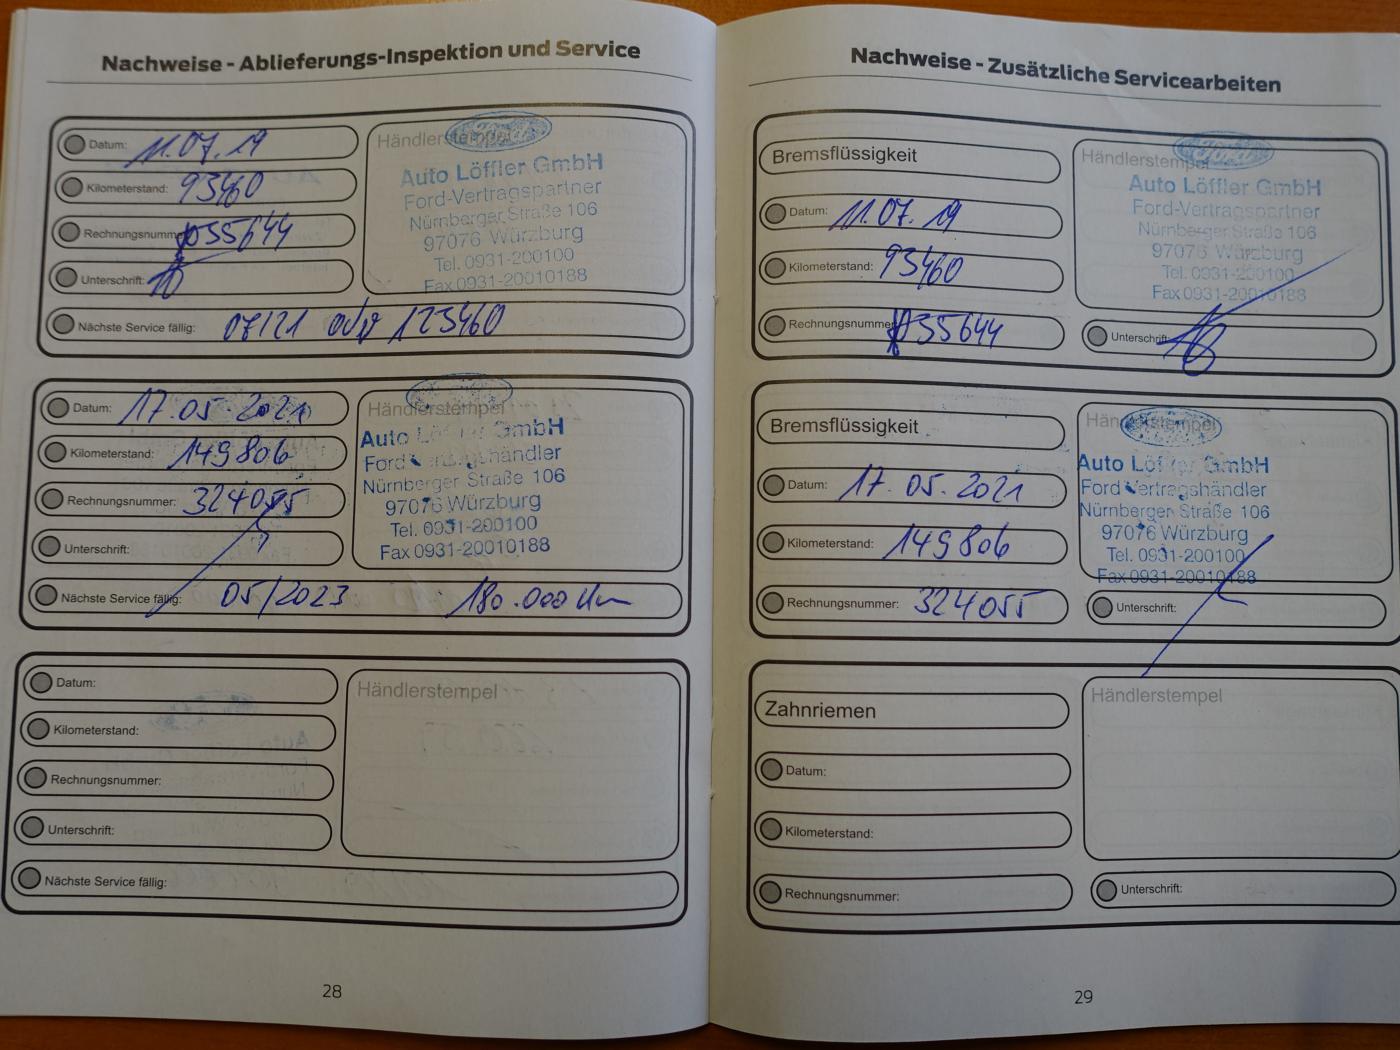 Nachweise - Ablieferungs-Inspektion und Service
Datum: 11.07.19
Kilometerstand: 93460
Rechnungsnummer 035644
Unterschrift:
Nächste Service fällig: 07/21 oder 123460
Händlerstempel
Ford
Auto Löffler GmbH
Ford-Vertragspartner
Nürnberger Straße 106
97076 Würzburg
Tel. 0931-200100
Fax 0931-20010188
Datum: 17.05.2021
Kilometerstand: 149806
Rechnungsnummer: 324055
Unterschrift:
Nächste Service fällig: 05/2023 180.000 Km
Händlerstempel
Auto Löffler GmbH
Ford Vertragshändler
Nürnberger Straße 106
97076 Würzburg
Tel. 0931-200100
Fax 0931-20010188
Datum:
Kilometerstand:
Rechnungsnummer:
Unterschrift:
Nächste Service fällig:
Händlerstempel
28
Nachweise - Zusätzliche Servicearbeiten
Bremsflüssigkeit
Datum: 11.07.19
Kilometerstand: 93460
Rechnungsnummer 035644
Händlerstempel
Auto Löffler GmbH
Ford-Vertragspartner
Nürnberger Straße 106
97076 Würzburg
Tel. 0931-200100
Fax 0931-20010188
Unterschrift:
Bremsflüssigkeit
Datum: 17.05.2021
Kilometerstand: 149806
Rechnungsnummer: 324055
Händlerstempel
Auto Löffler GmbH
Ford Vertragshändler
Nürnberger Straße 106
97076 Würzburg
Tel. 0931-200100
Fax 0931-20010188
Unterschrift:
Zahnriemen
Datum:
Kilometerstand:
Rechnungsnummer:
Händlerstempel
Unterschrift:
29